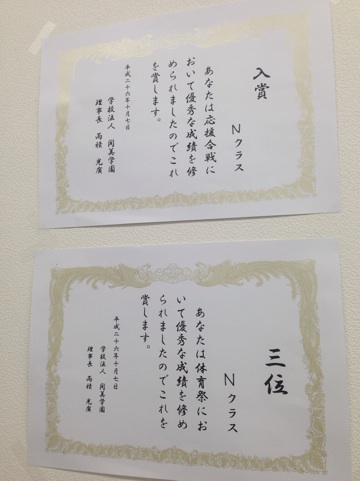 入賞
Nクラス
あなたは応援合戦に
おいて優秀な成績を修
められましたのでこれ
を賞します。
平成二十六年十月七日
学校法人 関美学園
理事長 高橋 光廣
三位
Nクラス
あなたは体育祭にお
いて優秀な成績を修め
られましたのでこれを
賞します。
平成二十六年十月七日
学校法人 関美学園
理事長 高橋 光廣